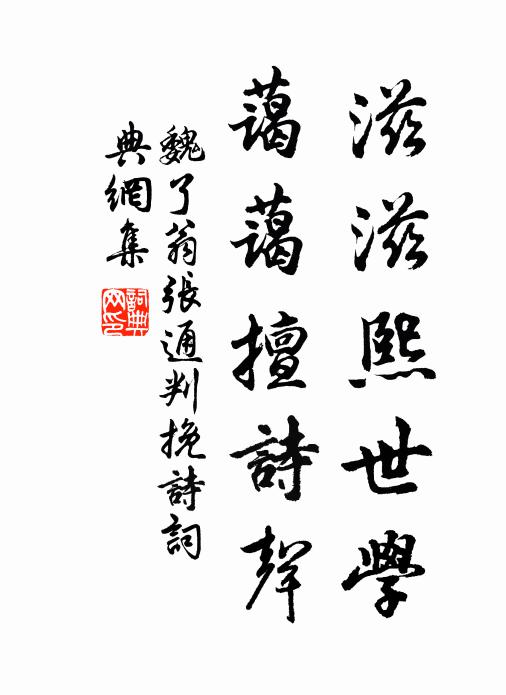 滋滋熙世學
藹藹擅詩聲
魏了翁張通判挽詩詞
典網集
詞典
网印